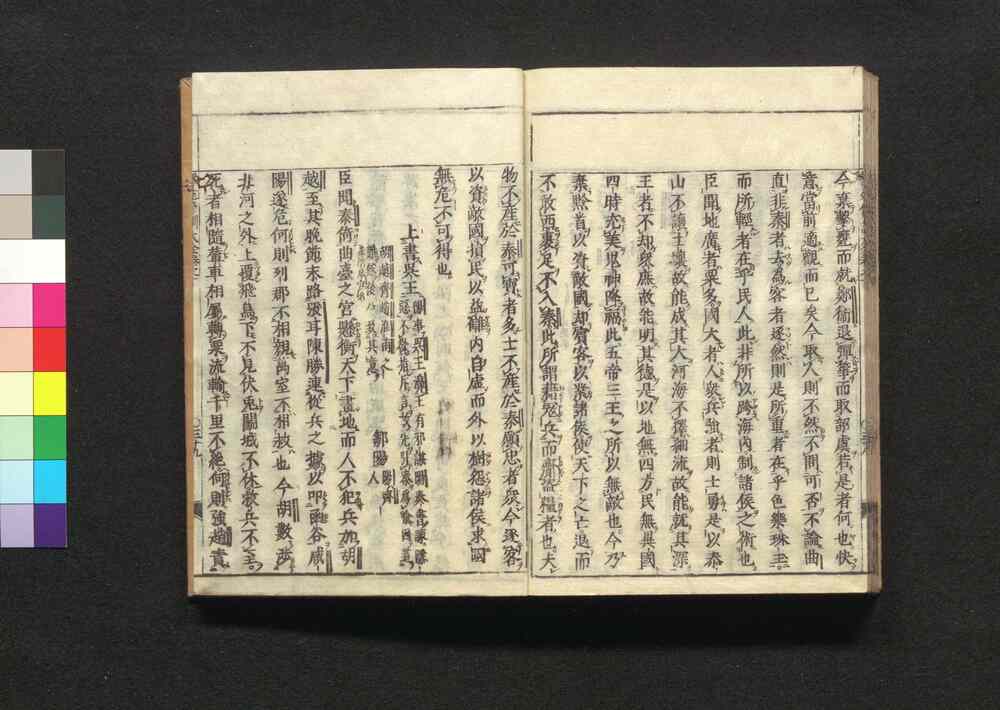 今棄擊甕而就鄭衛退彈箏而取韶虞若是者何也快
意當前適觀而已矣今取人則不然不問可否不論曲
直非秦者去為客者逐然則是所重者在乎色樂珠玉
而所輕者在乎民人此非所以跨海內制諸侯之術也
臣聞地廣者粟多國大者人衆兵強者則士勇是以泰
山不讓土壤故能成其大河海不擇細流故能就其深
王者不却衆庶故能明其德是以地無四方民無異國
四時充美鬼神降福此五帝三王之所以無敵也今乃
棄黔首以資敵國却賓客以業諸侯使天下之士退而
不敢西裹足不入秦此所謂藉寇兵而齎盜糧者也夫
物不產於秦可寶者多士不產於秦願忠者衆今逐客
以資敵國損民以益讎內自虛而外以樹怨諸侯求國
無危不可得也
上書吳王
鄒陽
臣聞秦倚曲臺之宮懸衡天下畫地而人不犯兵加胡
越至其晚節末路張耳陳勝連從兵之據以叩函谷咸
陽遂危何則列郡不相親萬室不相救也今胡數涉
北河之外上覆飛鳥下不見伏兔鬬城不休救兵不至
死者相隨輦車相屬轉粟流輸千里不絕何則強趙責